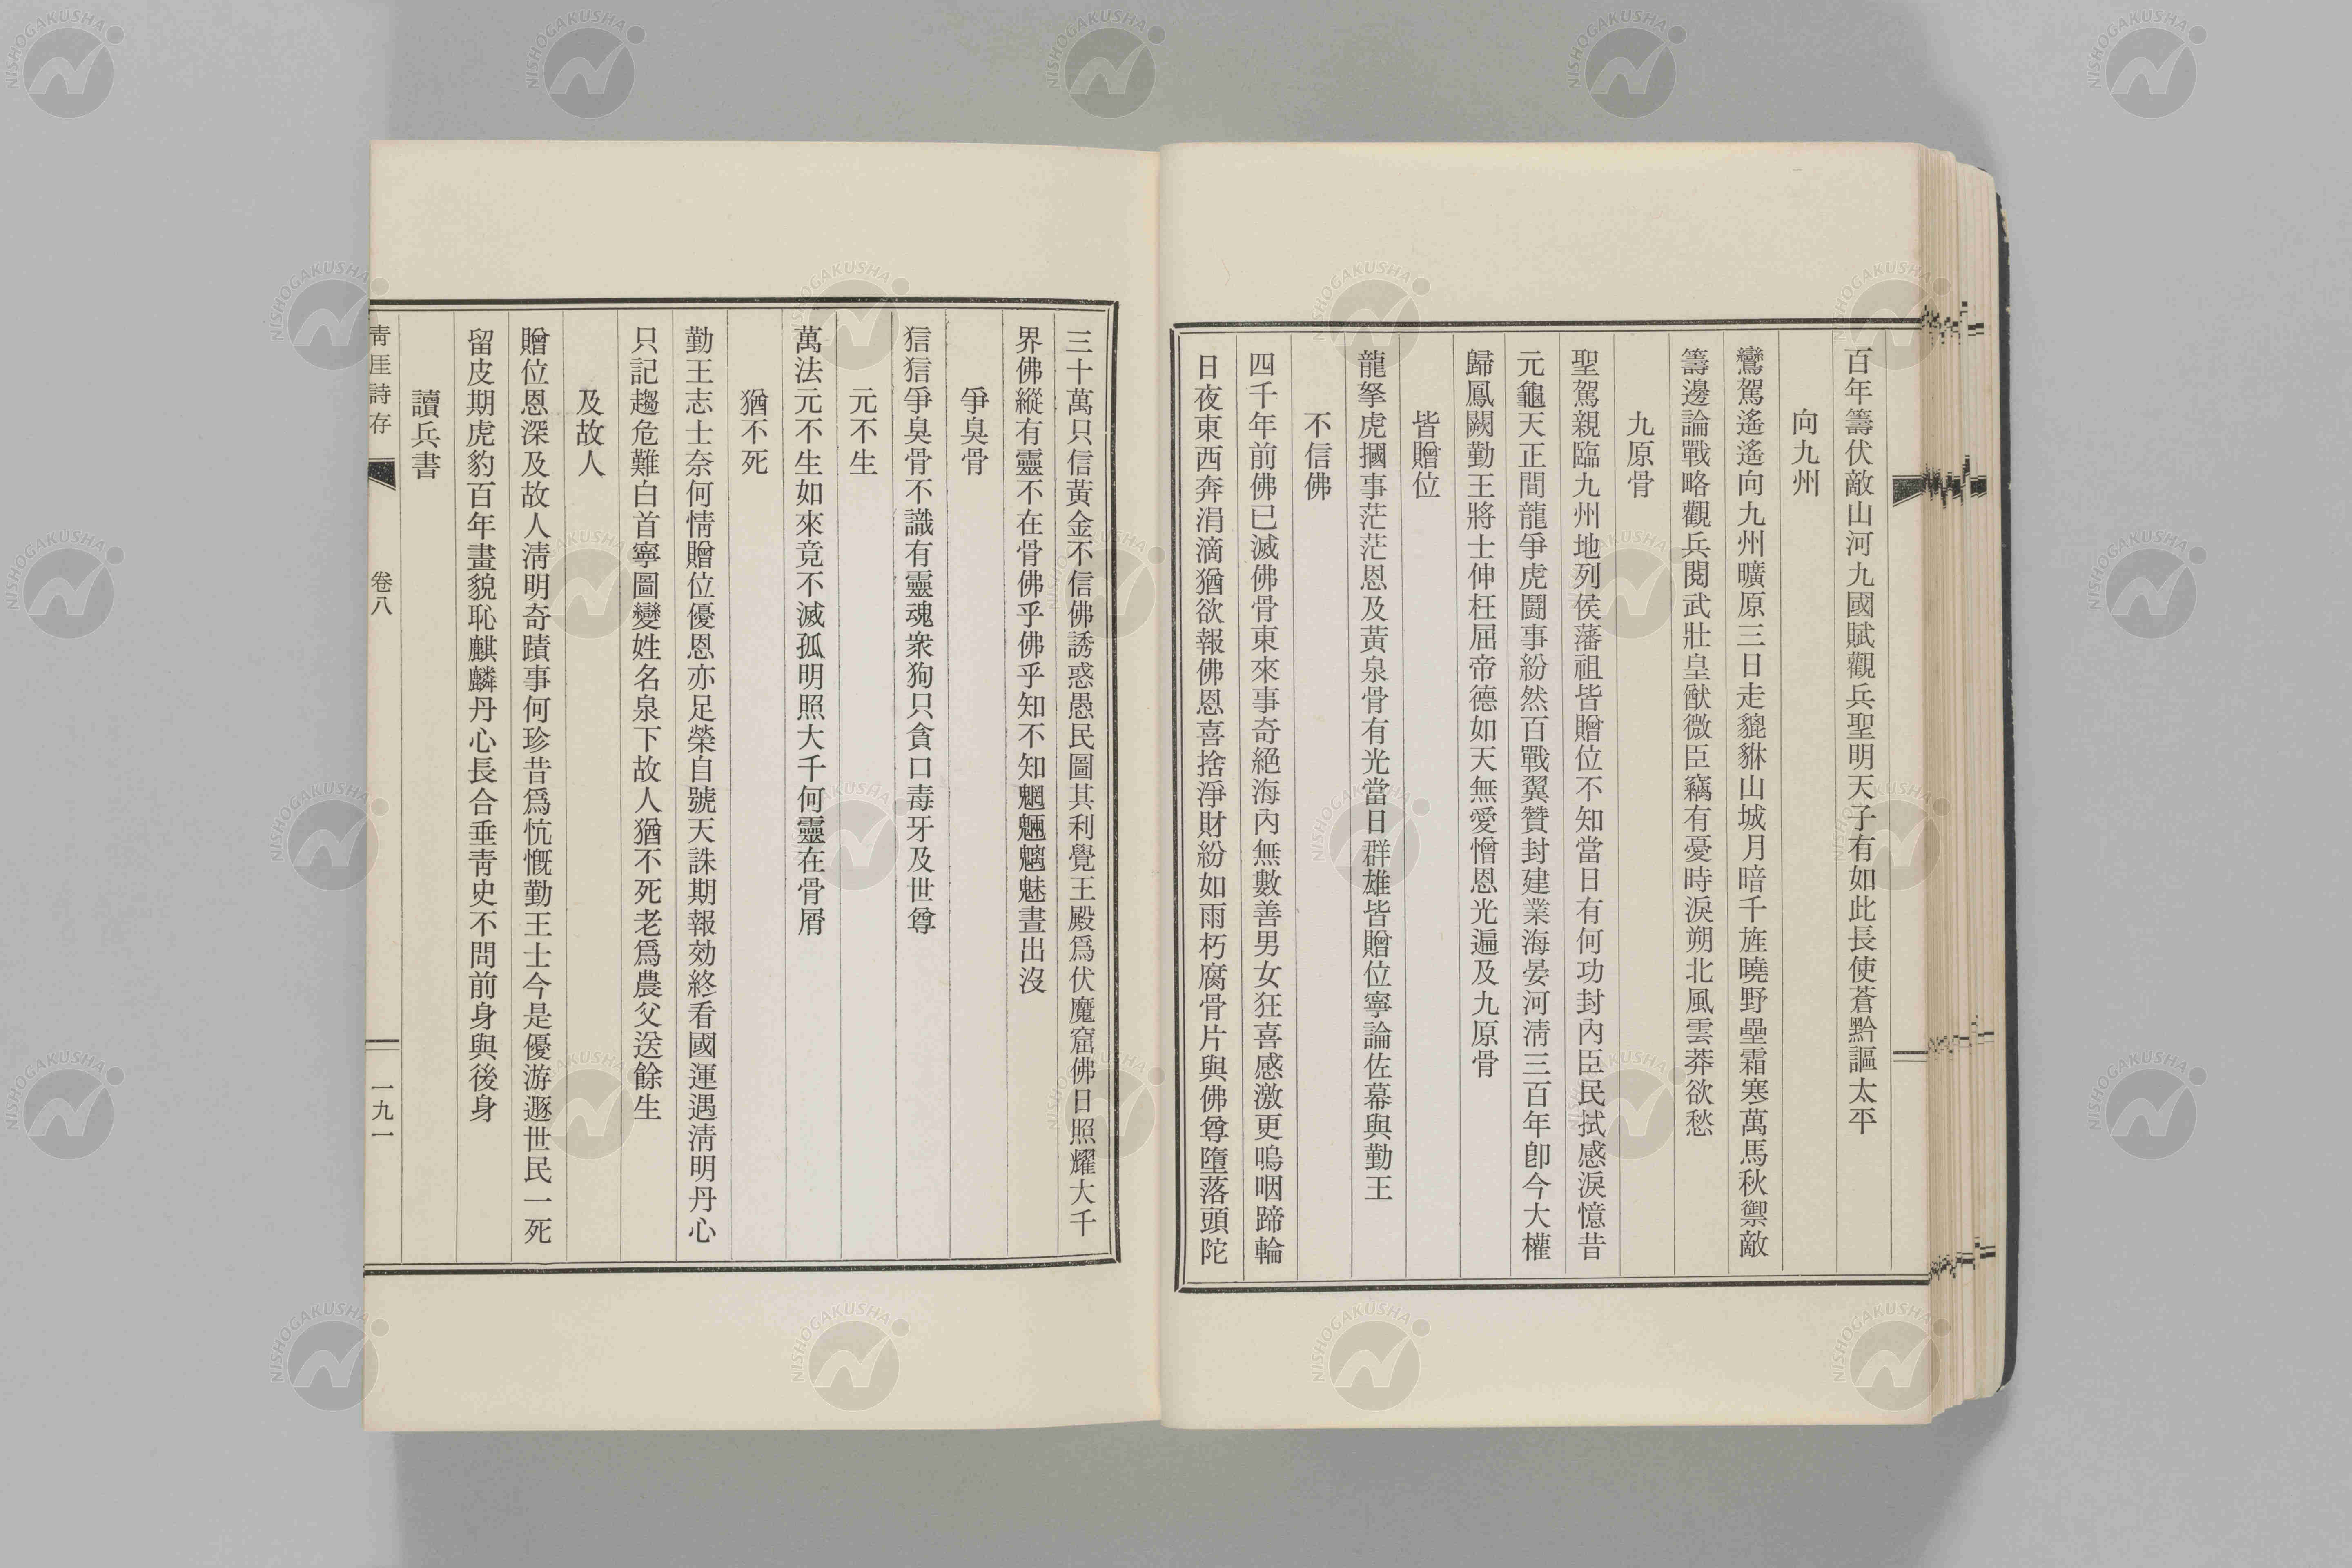 百年籌伏敵山河九國賦觀兵聖明天子有如此長使蒼黔謳太平
向九州
鸞駕遙遙向九州曠原三日走貔貅山城月暗千旌曉野壘霜寒萬馬秋禦敵
籌邊論戰略觀兵閱武壯皇猷微臣竊有憂時淚朔北風雲莽欲愁
九原骨
聖駕親臨九州地列侯藩祖皆贈位不知當日有何功封內臣民拭感淚憶昔
元龜天正間龍爭虎鬪事紛然百戰翼贊封建業海晏河淸三百年卽今大權
歸鳳闕勤王將士伸枉屈帝德如天無愛憎恩光遍及九原骨
皆贈位
龍拏虎摑事茫茫恩及黃泉骨有光當日群雄皆贈位寧論佐幕與勤王
不信佛
四千年前佛已滅佛骨東來事奇絕海內無數善男女狂喜感激更嗚咽蹄輪
日夜東西奔涓滴猶欲報佛恩喜捨淨財紛如雨朽腐骨片與佛尊墮落頭陀
三十萬只信黃金不信佛誘惑愚民圖其利覺王殿爲伏魔窟佛日照耀大千
界佛縱有靈不在骨佛乎佛乎知不知魍魎魑魅晝出沒
爭臭骨
狺狺爭臭骨不識有靈魂衆狗只貪口毒牙及世尊
元不生
萬法元不生如來竟不滅孤明照大千何靈在骨屑
猶不死
勤王志士奈何情贈位優恩亦足榮自號天誅期報効終看國運遇淸明丹心
只記趨危難白首寧圖變姓名泉下故人猶不死老爲農父送餘生
及故人
贈位恩深及故人淸明奇蹟事何珍昔爲忼慨勤王士今是優游遯世民一死
留皮期虎豹百年畫貌恥麒麟丹心長合垂靑史不問前身與後身
讀兵書
靑厓詩存
卷八
一九一
NISHOGAKUSHA